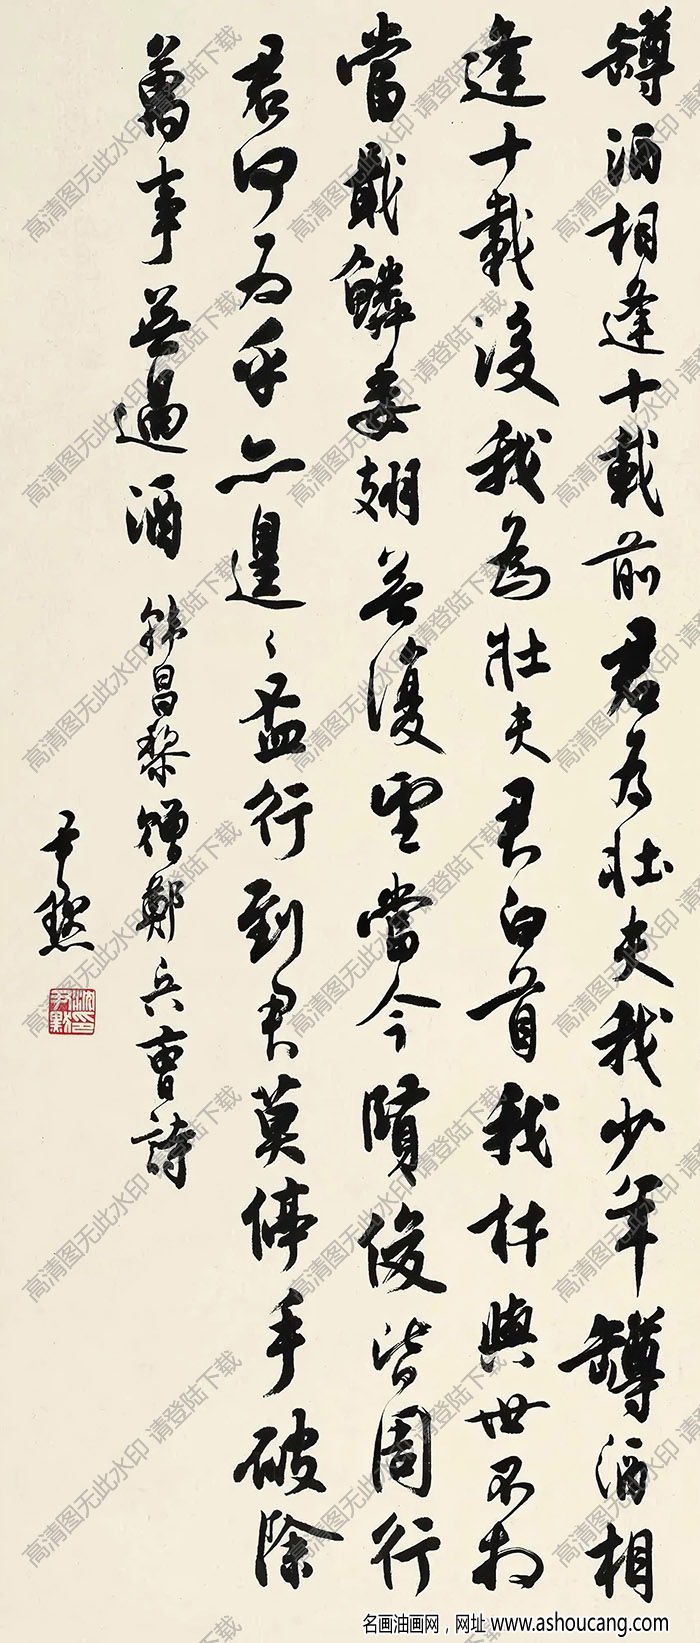 罇酒相逢十載前君為壯夫我少年罇酒相
逢十載後我為壯夫君白首我材與世不相
當戢鱗委翅無復望當今賢俊皆周行
君何為乎亦遑〻盃行到君莫停手破除
萬事無過酒 韓昌黎贈鄭兵曹詩
尹默
沈印尹默
高清图无此水印 请登陆下载
名画油画网，网址 www.ashoucang.com